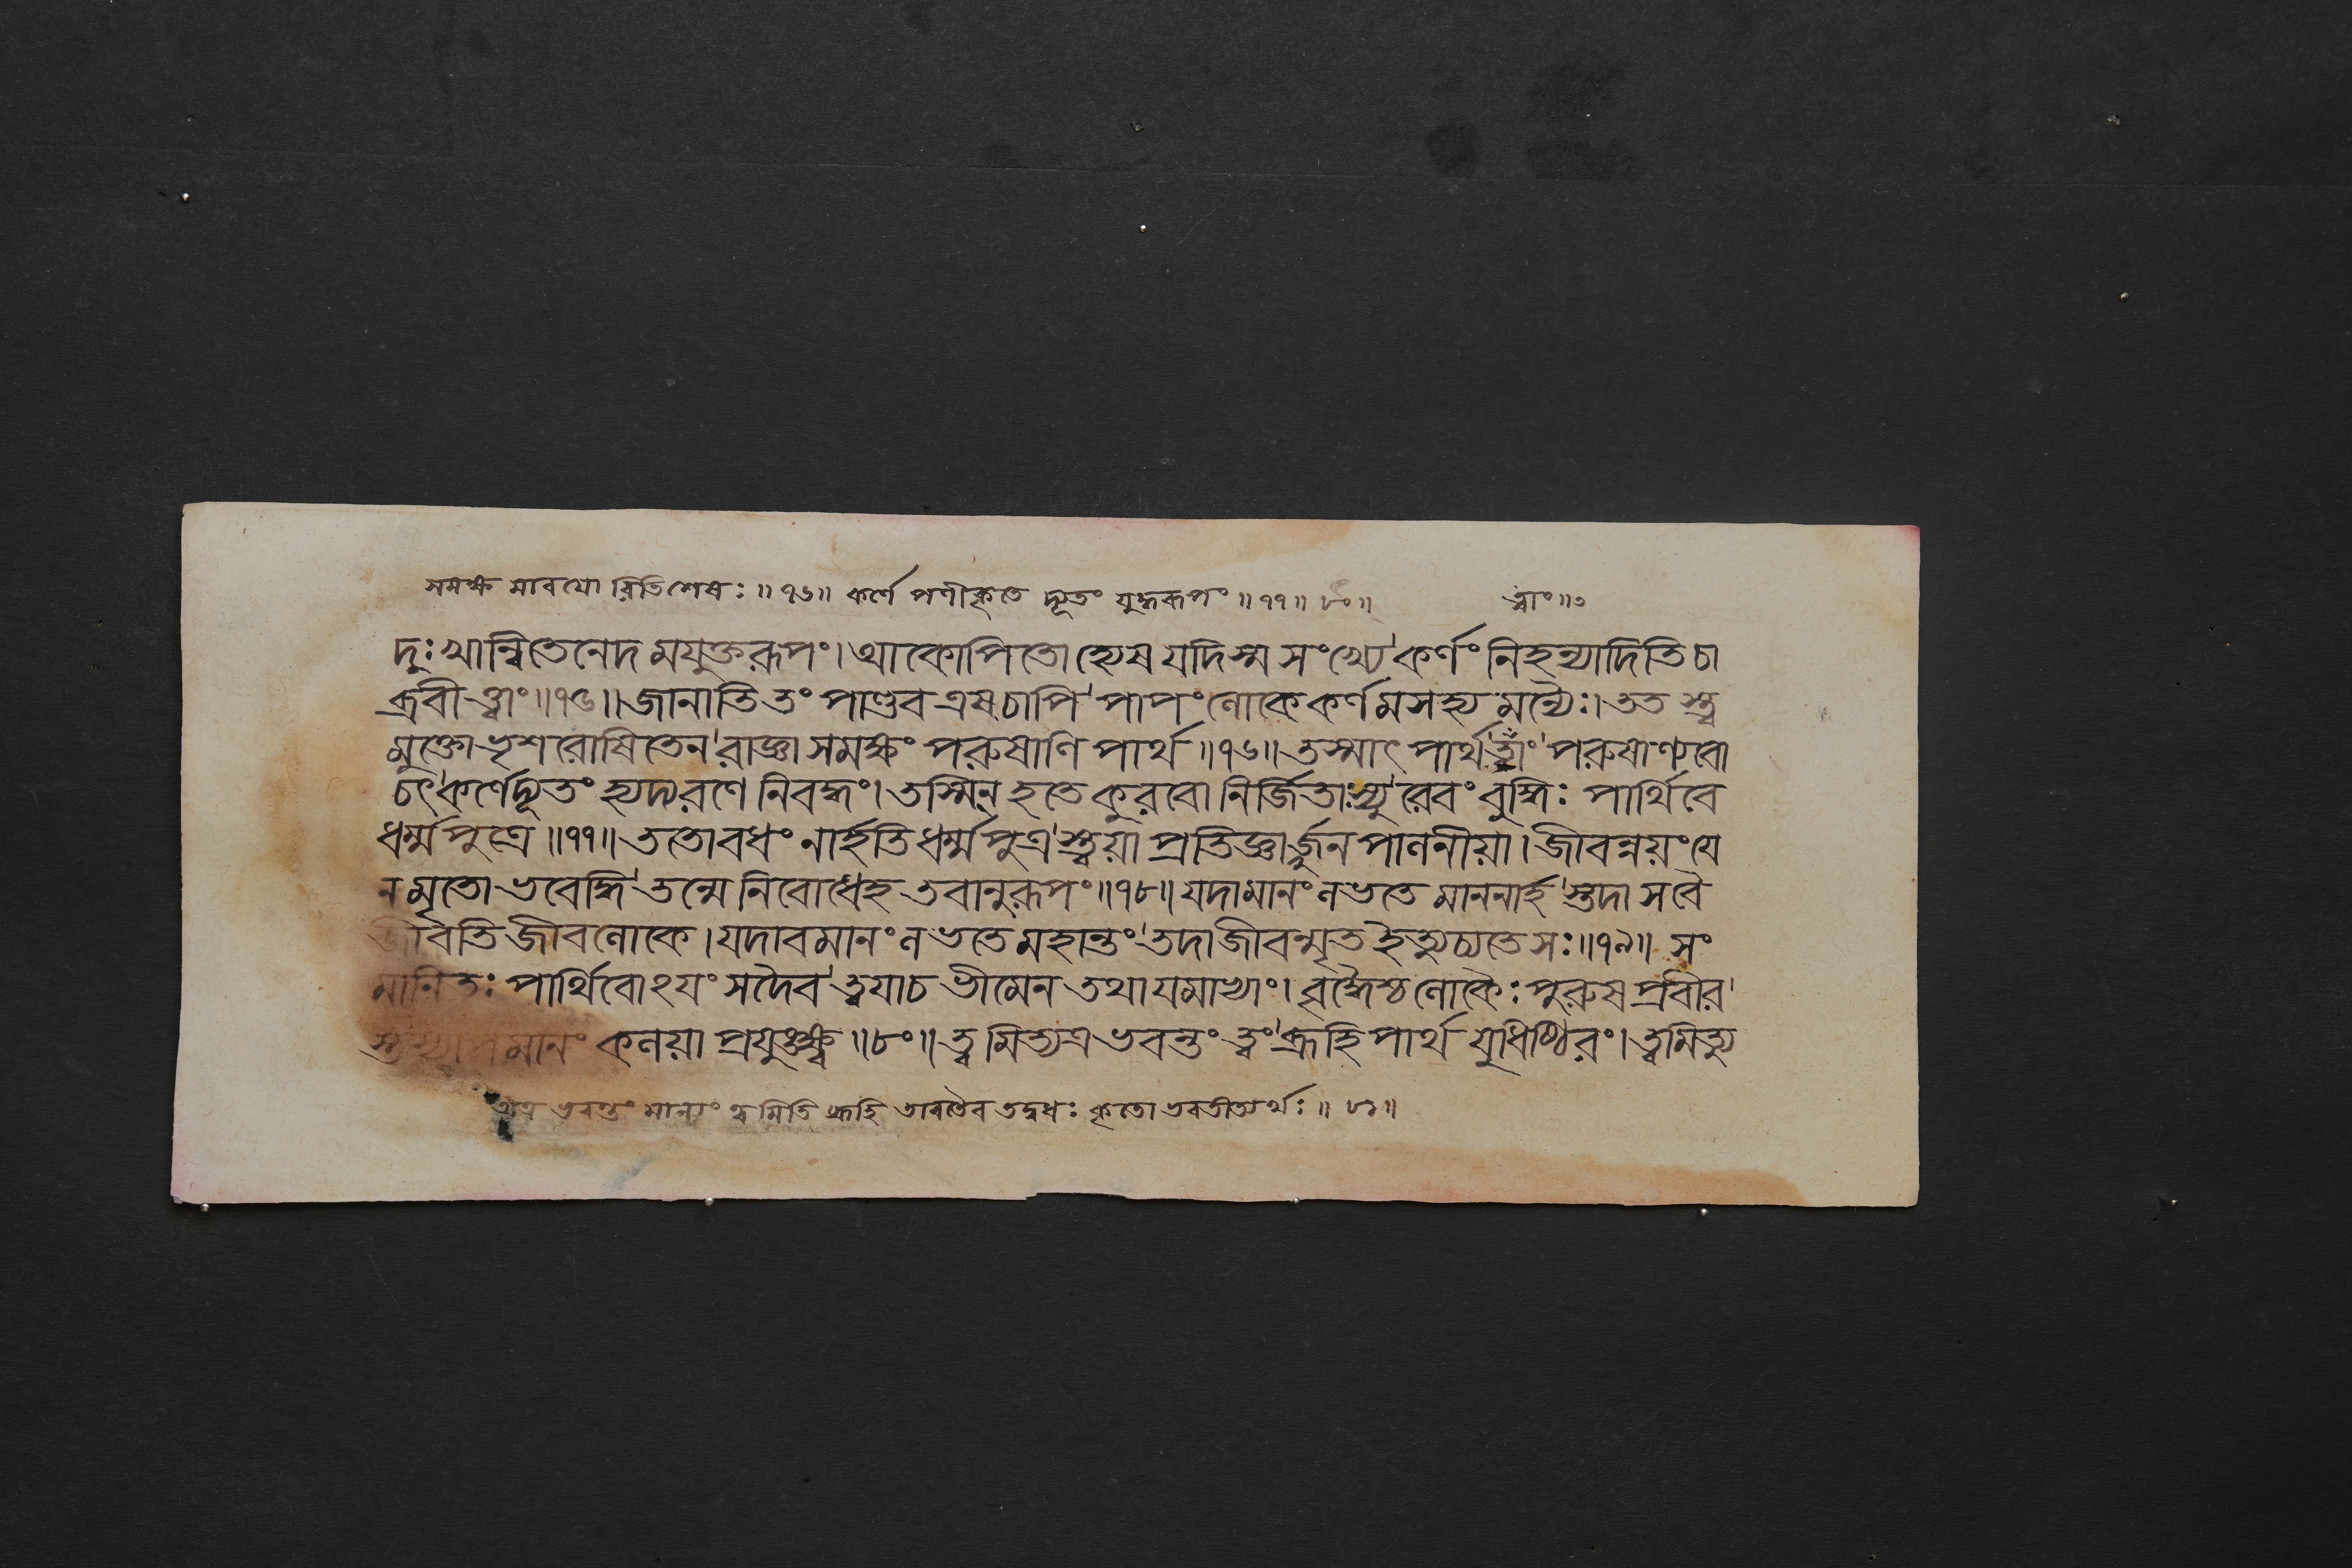 সমক্ষ মাবযো রিতিশেষঃ॥৭৬॥ কর্ণে পণীকৃতে দ্যূতং যুদ্ধরূপং॥৭৭॥ ৮ং॥ ত্বাং॥৩
দুঃখান্বিতেনেদ মযুক্তরূপং। অাকোপিতো হ্যেষ যদিস্ম সংখ্যে কর্ণং নিহন্যাদিতি চা
ব্রবী ত্ত্বাং॥৭৫॥ জানাতি তং পাণ্ডব এষ চাপি পাপং লোকে কর্ণ মসহ্য মন্যৈঃ। তত স্ত্ব
মুক্তো ভৃশ রোষিতেন রাজ্ঞা সমক্ষং পরুষাণি পার্থ॥৭৬॥ তস্মাৎ পার্থ ত্বাং পরুষাণ্যবো
চৎ কর্ণে দ্যূতং হ্যদ্য রণে নিবদ্ধং। তস্মিন্ হতে কুরবো নির্জিতাঃ স্যু রেবং বুদ্ধিঃ পার্থিবে
ধর্ম্ম পুত্রে॥৭৭॥ ততো বধং নার্হতি ধর্ম্ম পুত্র স্ত্বয়া প্রতিজ্ঞার্জুন পালনীয়া। জীবন্নয়ং যে
ন মৃতো ভবেদ্ধি তন্মে নিবোধেহ তবানুরূপং॥৭৮॥ যদা মানং লভতে মাননার্হ স্তদা স বৈ
জীবতি জীবলোকে। যদাবমানং লভতে মহান্তং তদা জীবন্মৃত ইত্যুচ্যতে সঃ॥৭৯॥ সং
মানিতঃ পার্থিবোঽযং সদৈব ত্বযা চ ভীমেন তথা যমাভ্যাং। বৃদ্ধৈশ্চ লোকৈঃ পুরুষ প্রবীর
স্তস্যাবমানং কলয়া প্রযুঙ্ক্ষ্ব॥৮ং॥ ত্ব মিত্যত্র ভবন্তং ত্বং ব্রূহি পার্থ যুধিষ্ঠিরং। ত্বমিত্যু
অত্র ভবন্তং মান্যং ত্ব মিতি ব্রূহি তাবতৈব তদ্বধঃ কৃতো ভবতীত্যর্থঃ॥ ৮১॥